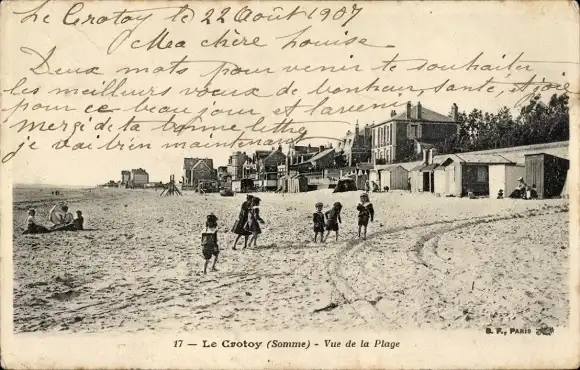 Le Crotoy le 22 Août 1907
Mea chère Louise
Deux mots pour venir te souhaiter
les meilleurs vœux de bonheur, santé, et joie
pour ce beau jour et l'avenir
mergi de ta bonne lettre
je vais bien maintenant
B. F., PARIS
17 — LE CROTOY (Somme) - VUE DE LA PLAGE